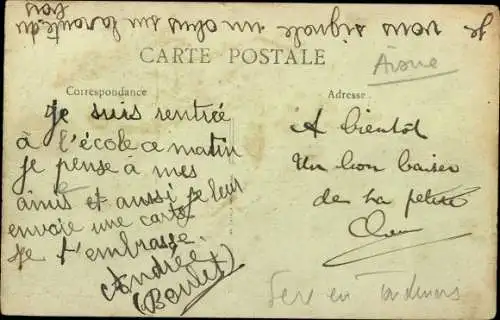 Je vous signale un obus sur la route du
bois
CARTE POSTALE
Aisne
Correspondance
Adresse
Je suis rentrée
à l'école ce matin
je pense à mes
amis et aussi je leur
envoie une carte
Je t'embrasse.
Andrée
(Boulet)
A bientôt
Un bon baiser
de ta petite
Fere en Tardenois